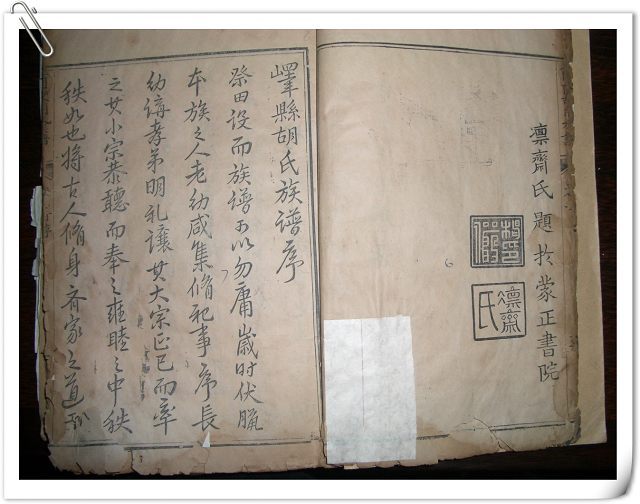 凛齋氏題扵蒙正書院
凛齋氏
嶧縣胡氏族譜序
祭田設而族譜可以勿庸歲时伏臘
本族之人老幼咸集脩祀事序長
幼講孝弟明礼讓其大宗正己而率
之其小宗恭聽而奉之雍睦之中秩
秩如也將古人脩身齐家之道